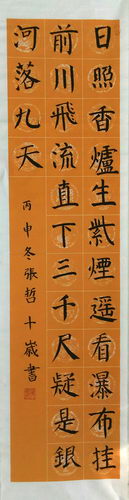 日照香爐生紫煙遥看瀑布挂
前川飛流直下三千尺疑是銀
河落九天
丙申冬張哲十歲書